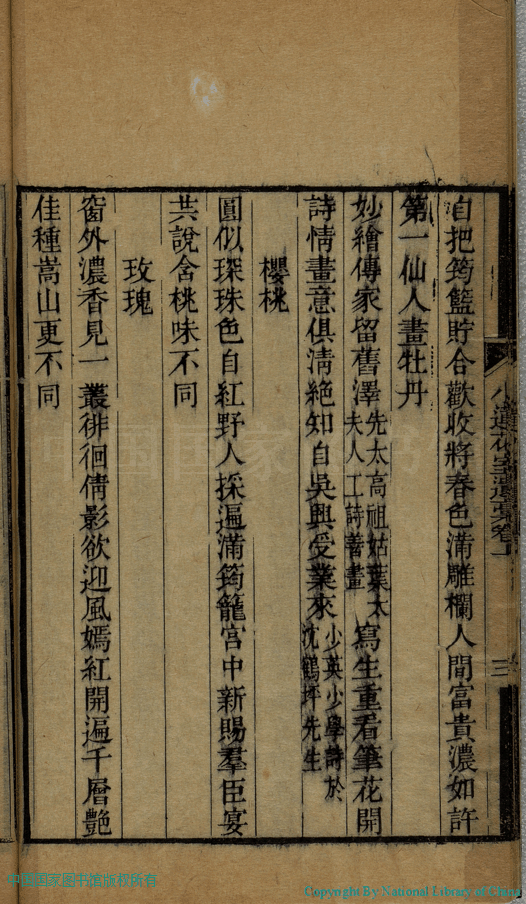 自把筠籃貯合歡收將春色滿雕欄人間富貴濃如許
第一仙人畫牡丹
妙繪傳家留舊澤先太高祖姑葉太夫人工詩善畫寫生重看筆花開
詩情畫意俱清絕知自吳興受業來少英少學詩於沈鶴坪先生
櫻桃
圓似琛珠色自紅野人採遍滿筠籠宮中新賜羣臣宴
共說含桃味不同
玫瑰
窗外濃香見一叢徘徊倩影欲迎風嫣紅開遍千層艷
佳種嵩山更不同
小蓬花遺卷上
三
中国国家图书馆版权所有
Copyright By National Library of China